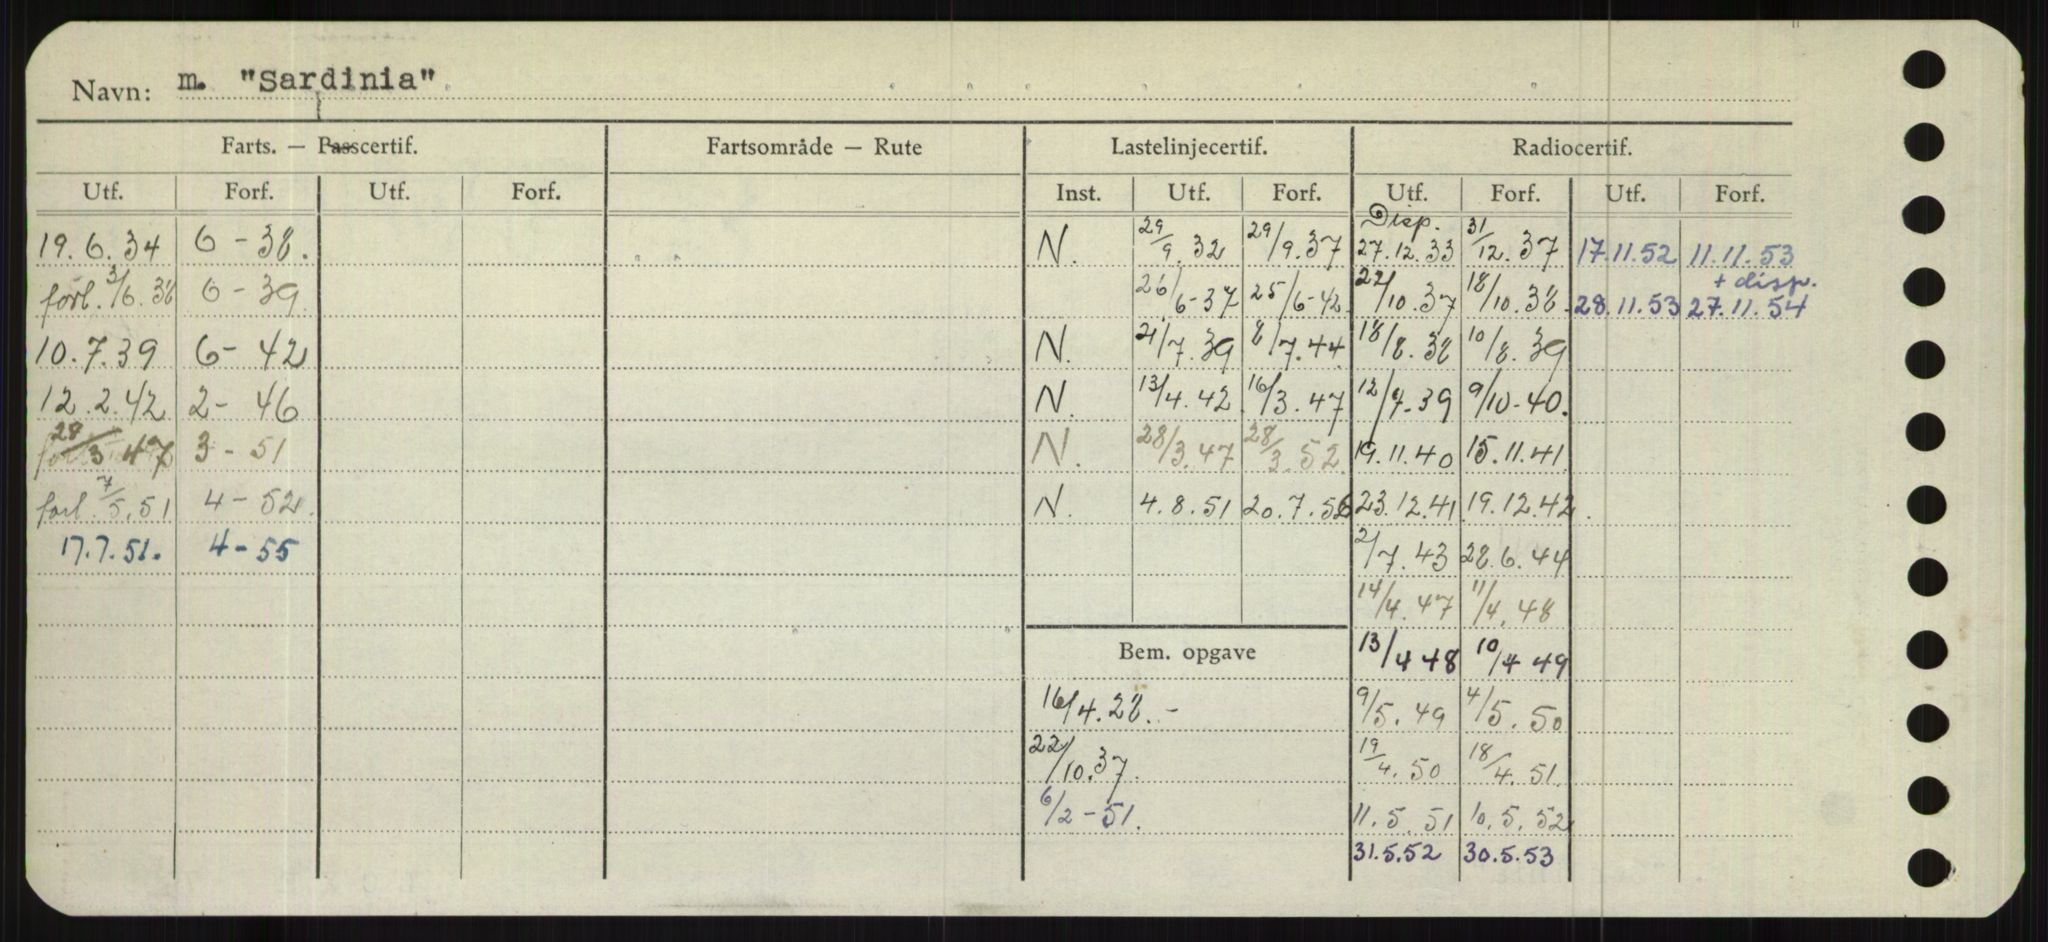 Navn: m. "Sardinia"
Farts. — Passcertif. Fartsområde — Rute Lastelinjecertif. Radiocertif.
Utf. Forf. Utf. Forf. Inst. Utf. Forf. Utf. Forf. Utf. Forf.
19.6.34 6-38. N. 29/9.32 29/9.37 Disp. 27.12.33 31/12.37 17.11.52 11.11.53
+ disp.
forl. 3/6.38 6-39 26/6-37 25/6-42 22/10.37 18/10.38 28.11.53 27.11.54
10.7.39 6-42 N. 21/7.39 8/7.44 18/8.38 10/8.39
12.2.42 2-46 N. 13/4.42 16/3.47 12/9.39 9/10-40.
28/3 47 3-51 N. 28/3.47 28/3.52 19.11.40 15.11.41
forl. 7/5.51 4-52. N. 4.8.51 20.7.56 23.12.41 19.12.42
17.7.51. 4-55 2/7.43 28.6.44
14/4.47 11/4.48
Bem. opgave 13/4 48 10/4 49
16/4.28.- 9/5.49 4/5.50
22/10.37. 19/4.50 18/4.51
6/2-51. 11.5.51 10.5.52
31.5.52 30.5.53